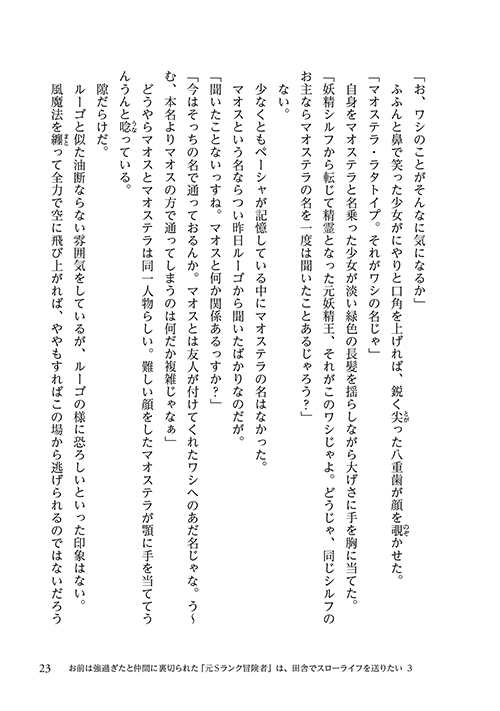 「お、ワシのことがそんなに気になるか」
ふふんと鼻で笑った少女がにやりと口角を上げれば、鋭く尖った八重歯が顔を覗かせた。
「マオステラ・ラタトイプ。それがワシの名じゃ」
自身をマオステラと名乗った少女が淡い緑色の長髪を揺らしながら大げさに手を胸に当てた。
「妖精シルフから転じて精霊となった元妖精王、それがこのワシじゃよ。どうじゃ、同じシルフの
お主ならマオステラの名を一度は聞いたことあるじゃろう？」
ない。
少なくともペーシャが記憶している中にマオステラの名はなかった。
マオスという名ならつい昨日ルーゴから聞いたばかりなのだが。
「聞いたことないっすね。マオスと何か関係あるっすか？」
「今はそっちの名で通っておるんか。マオスとは友人が付けてくれたワシへのあだ名じゃな。う～
む、本名よりマオスの方で通ってしまうのは何だか複雑じゃなぁ」
どうやらマオスとマオステラは同一人物らしい。難しい顔をしたマオステラが顎に手を当ててう
んうんと唸っている。
隙だらけだ。
ルーゴと似た油断ならない雰囲気をしているが、ルーゴの様に恐ろしいといった印象はない。
風魔法を纏って全力で空に飛び上がれば、ややもすればこの場から逃げられるのではないだろう
23 お前は強過ぎたと仲間に裏切られた「元Sランク冒険者」は、田舎でスローライフを送りたい 3